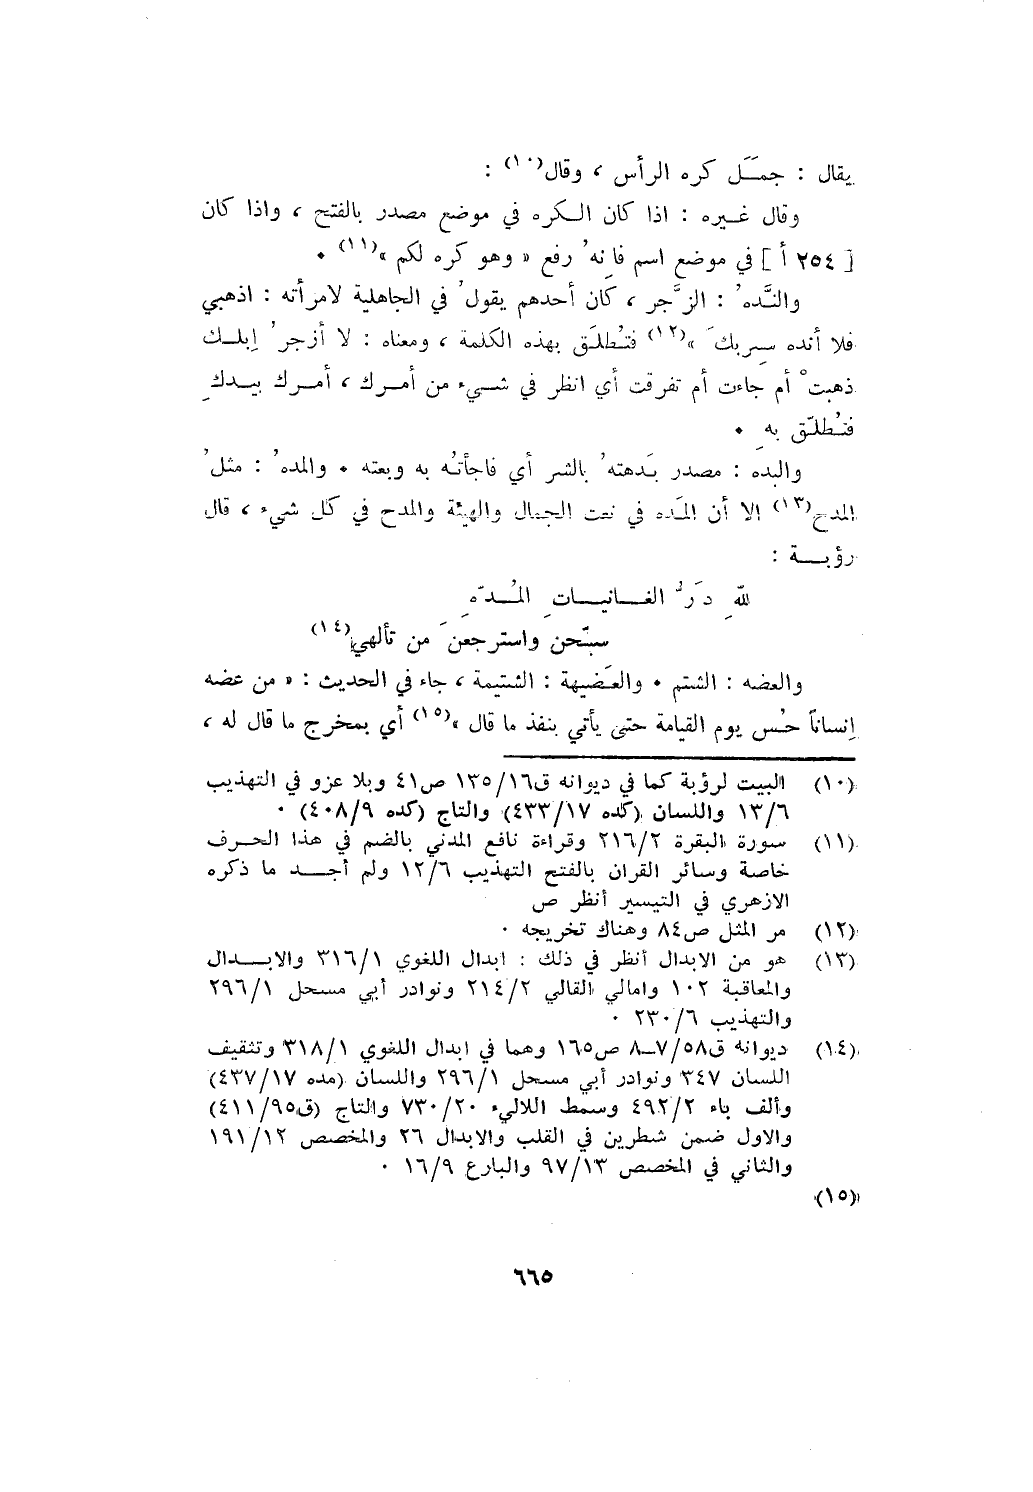 يقال : جمَل كره الرأس ، وقال(١٠) :
وقال غيره : اذا كان الكره في موضع مصدر بالفتح ، واذا كان
[ ٢٥٤ أ ] في موضع اسم فإنهُ رفع « وهو كره لكم »(١١) ٠
والنَّدهُ : الزَّجر ، كان أحدهم يقولُ في الجاهلية لامرأته : اذهبي
فلا أنده سِربكَ »(١٢) فتُطلَق بهذه الكلمة ، ومعناه : لا أزجرُ إبلك
ذهبتْ أم جاءت أم تفرقت أي انظر في شيء من أمرك ، أمرك بيدكِ
فتُطلّق بهِ ٠
والبده : مصدر بَدهتهُ بالشر أي فاجأتُه به وبعته ٠ والمدهُ : مثلُ
المدح(١٣) الا أن المَده في نعت الجمال والهيئة والمدح في كل شيء ، قال
رؤبة :
للهِ دَرُّ الغانياتِ المُدّهِ
سبّحن واسترجعنَ من تألهي(١٤)
والعضه : الشتم ٠ والعَضيهة : الشتيمة ، جاء في الحديث : « من عضه
إنساناً حُبس يوم القيامة حتى يأتي بنفذ ما قال »(١٥) أي بمخرج ما قال له ،
(١٠) البيت لرؤبة كما في ديوانه ق١٣٥/١٦ ص٤١ وبلا عزو في التهذيب
١٣/٦ واللسان (كده ٤٣٣/١٧) والتاج (كده ٤٠٨/٩) ٠
(١١) سورة البقرة ٢١٦/٢ وقراءة نافع المدني بالضم في هذا الحرف
خاصة وسائر القران بالفتح التهذيب ١٢/٦ ولم أجد ما ذكره
الازهري في التيسير أنظر ص
(١٢) مر المثل ص٨٤ وهناك تخريجه ٠
(١٣) هو من الابدال أنظر في ذلك : ابدال اللغوي ٣١٦/١ والابدال
والمعاقبة ١٠٢ وامالي القالي ٢١٤/٢ ونوادر أبي مسحل ٢٩٦/١
والتهذيب ٢٣٠/٦ ٠
(١٤) ديوانه ق٧/٥٨ـ٨ ص١٦٥ وهما في ابدال اللغوي ٣١٨/١ وتثقيف
اللسان ٣٤٧ ونوادر أبي مسحل ٢٩٦/١ واللسان (مده ٤٣٧/١٧)
وألف باء ٤٩٢/٢ وسمط اللاليء ٧٣٠/٢٠ والتاج (ق٤١١/٩٥)
والاول ضمن شطرين في القلب والابدال ٢٦ والمخصص ١٩١/١٢
والثاني في المخصص ٩٧/١٣ والبارع ١٦/٩ ٠
(١٥)
٦٦٥